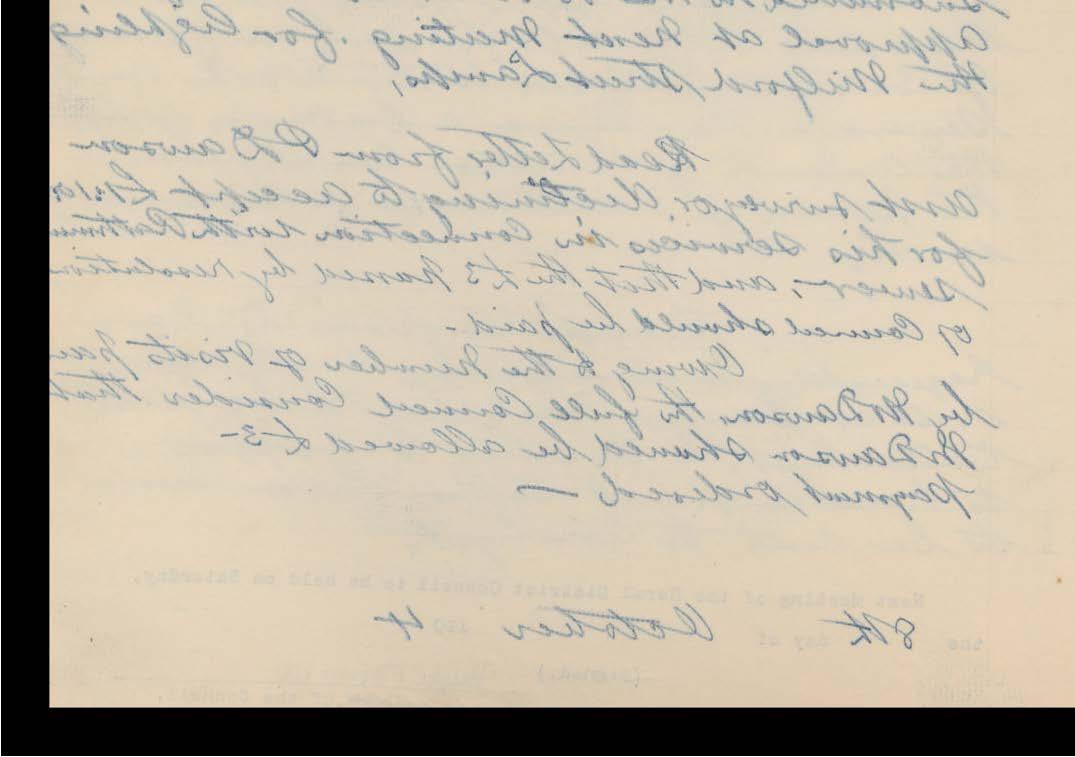 approval at next meeting. for lighting
the Milford Street Lamps,
Read Letter from P Dawson
asst surveyor, declining to accept
for his services in connection with
sewer, and that the £5 named by resolution
of Council should be paid.
Owing to the number of visits
by Mr Dawson, the full Council consider that
Mr Dawson should be allowed £3-
payment ordered —
Next Meeting of the Rural District Council to be held on Saturday,
the 8th day of October 190 4
(Signed.)
Clerk of the Council.